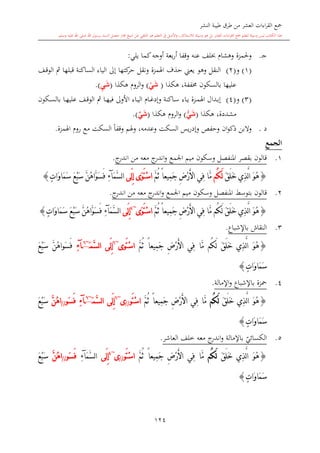 جمع القراءات العشر من طرق طيبة النشر
جـ. ولحمزة وهشام بخلف عنه وقفاً أربعة أوجه كما يلي:
(١) و(٢) النقل وهو يعني حذف الهمزة ونقل حركتها إلى الياء الساكنة قبلها ثم الوقف
عليها بالسكون مخففة، هكذا (شَيْ) والروم هكذا (شَيِ).
(٣) و(٤) إبدال الهمزة ياء ساكنة وإدغام الياء الأولى فيها ثم الوقف عليها بالسكون
مشددة، هكذا (شَيّْ) والروم هكذا (شَيِّ).
د. ولابن ذكوان وحفص وإدريس السكت وعدمه، ولهم وقفاً السكت مع روم الهمزة.
الجمع
١. قالون بقصر المنفصل وسكون ميم الجمع واندرج معه من اندرج.
﴿ هُوَ الَّذِي خَلَقَ لَكُم مَّا فِي الْأَرْضِ جَمِيعاً ثُمَّ اسْتَوَىٰ إِلَى السَّمَآءِ فَسَوَّاهُنَّ سَبْعَ سَمَاوَاتٍ ﴾
٢. قالون بتوسط المنفصل وسكون ميم الجمع واندرج معه من اندرج.
﴿ هُوَ الَّذِي خَلَقَ لَكُم مَّا فِي الْأَرْضِ جَمِيعاً ثُمَّ اسْتَوَىٰ إِلَى السَّمَآءِ فَسَوَّاهُنَّ سَبْعَ سَمَاوَاتٍ ﴾
٣. النقاش بالإشباع.
﴿ هُوَ الَّذِي خَلَقَ لَكُم مَّا فِي الْأَرْضِ جَمِيعاً ثُمَّ اسْتَوَىٰ إِلَى السَّمَآءِ فَسَوَّاهُنَّ سَبْعَ
سَمَاوَاتٍ ﴾
٤. حمزة بالإشباع والإمالة.
﴿ هُوَ الَّذِي خَلَقَ لَكُم مَّا فِي الْأَرْضِ جَمِيعاً ثُمَّ اسْتَوىٰ إِلَى السَّمَآءِ فَسَوَّىٰهُنَّ سَبْعَ
سَمَاوَاتٍ ﴾
٥. الكسائيّ بالإمالة واندرج معه خلف العاشر.
﴿ هُوَ الَّذِي خَلَقَ لَكُم مَّا فِي الْأَرْضِ جَمِيعاً ثُمَّ اسْتَوىٰ إِلَى السَّمَآءِ فَسَوَّىٰهُنَّ سَبْعَ
سَمَاوَاتٍ ﴾
١٢٤